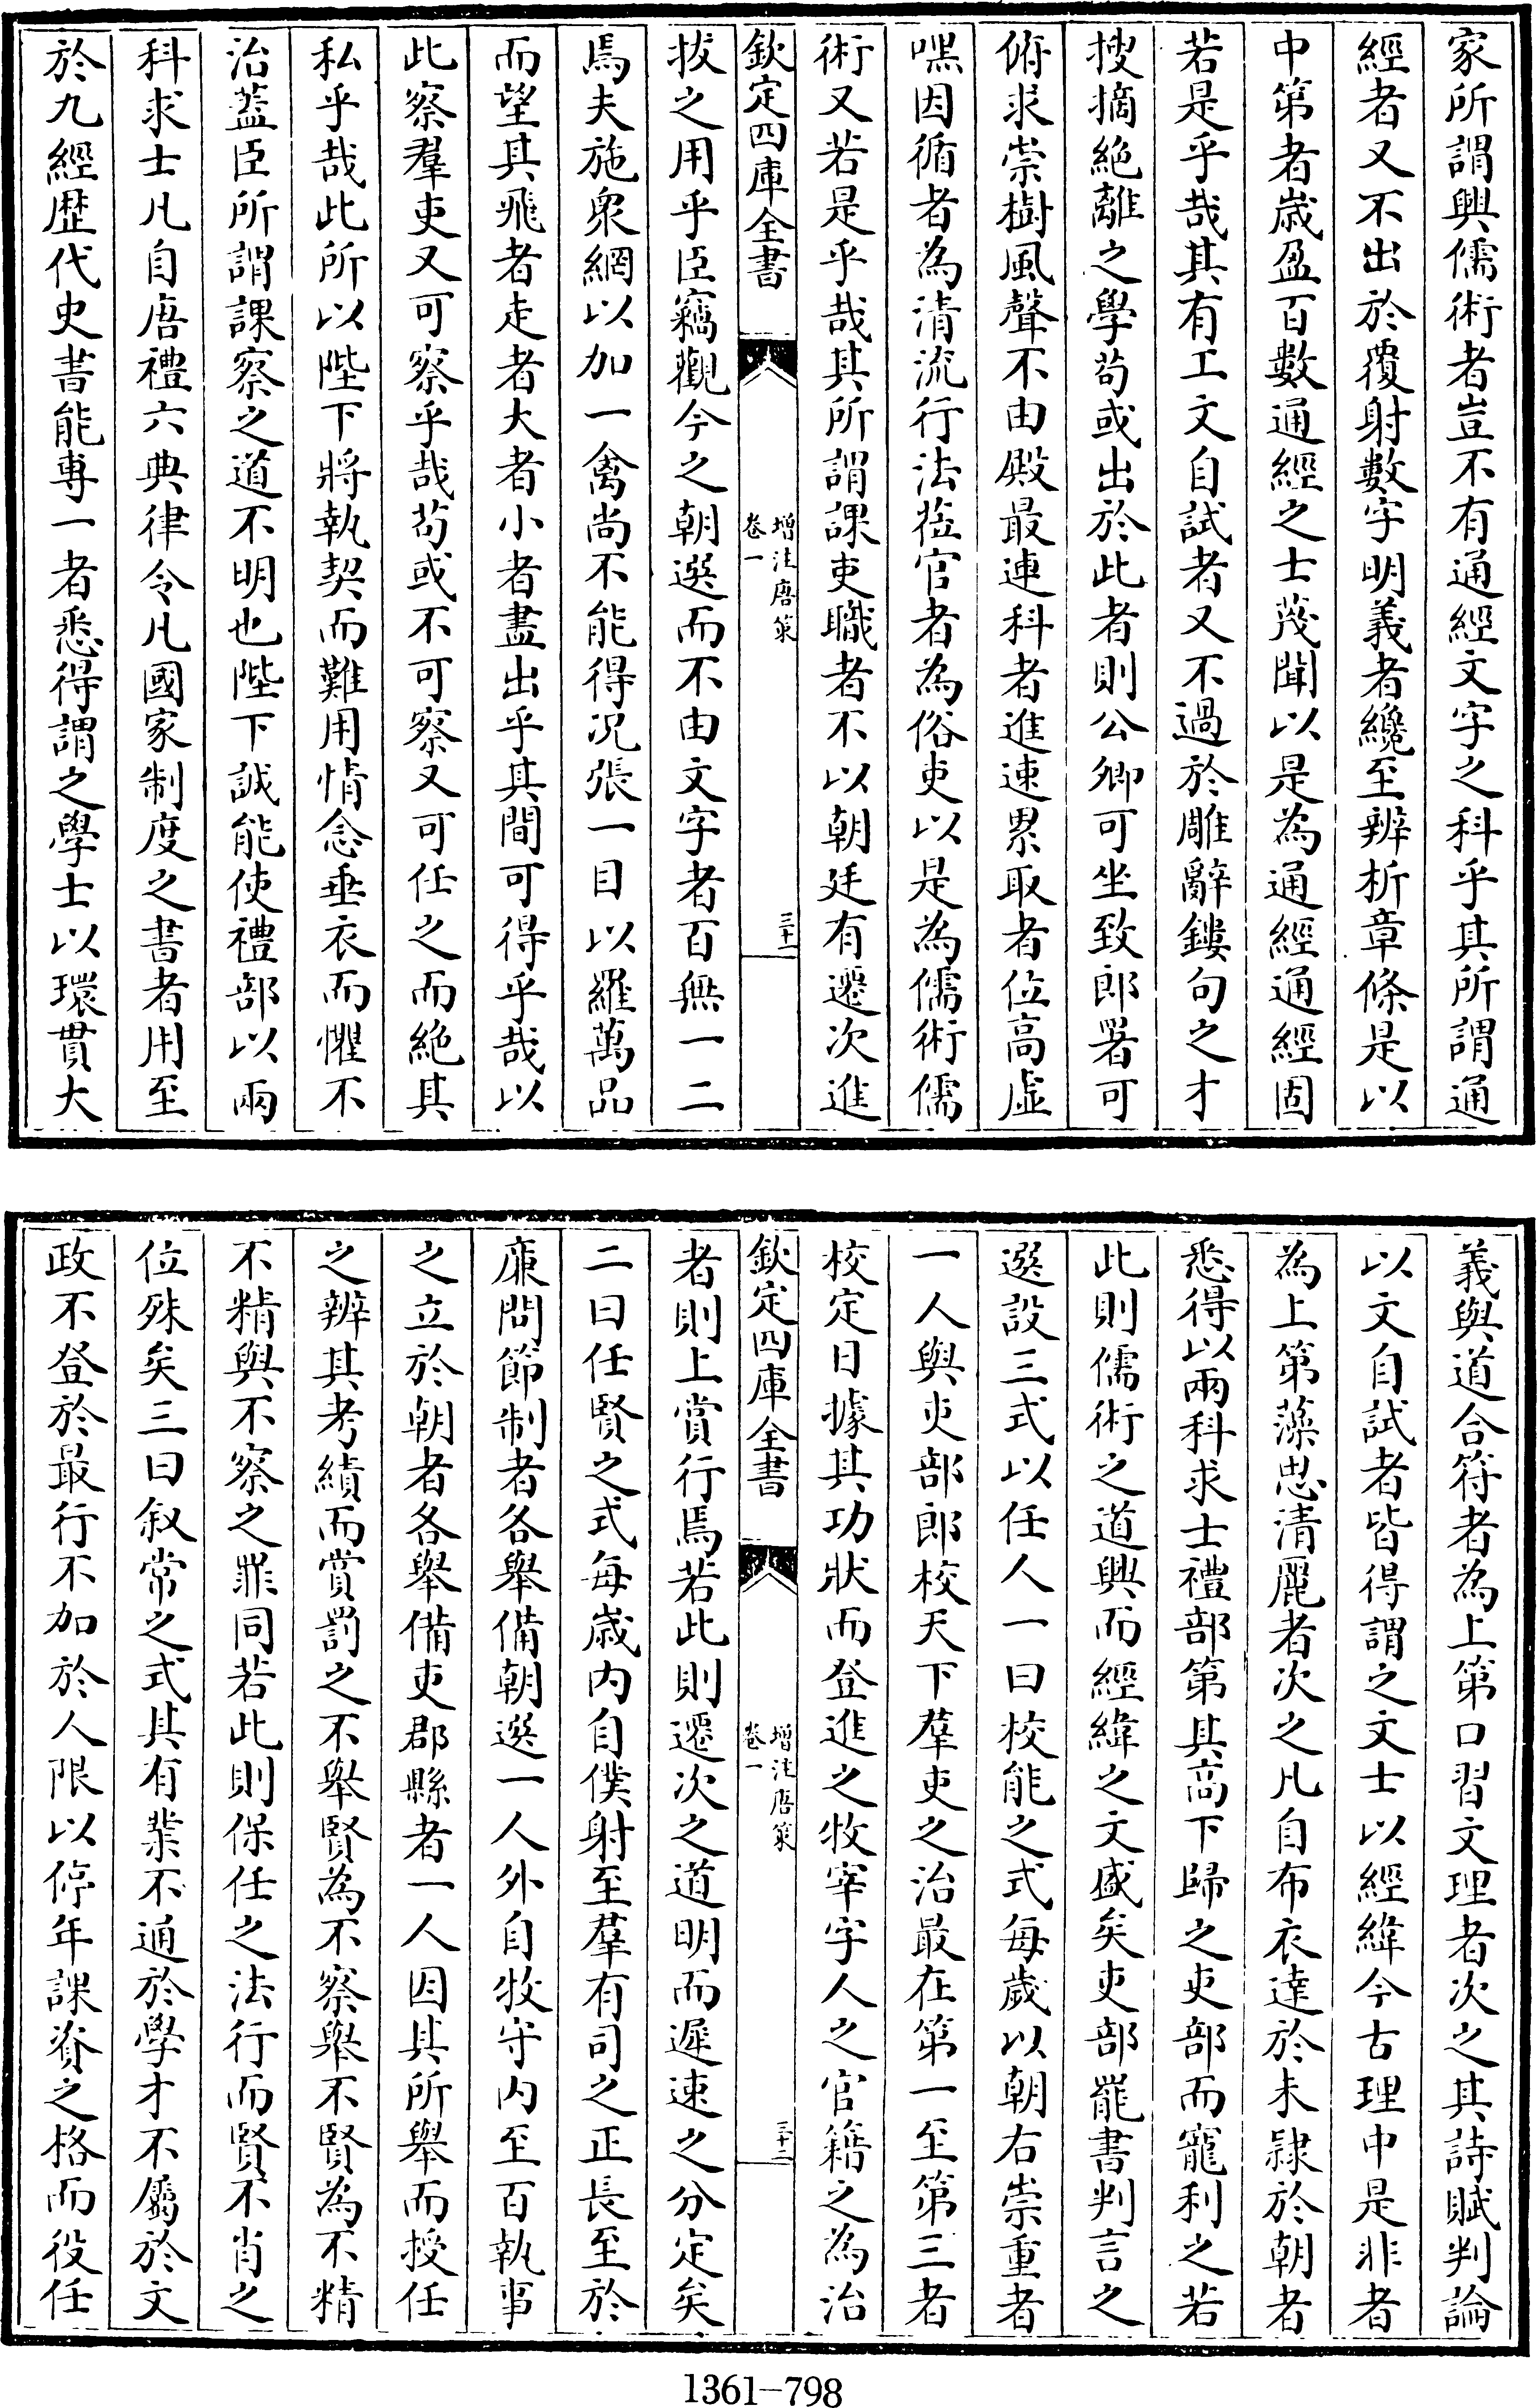 家所謂興儒術者豈不有通經文字之科乎其所謂通
經者又不出於覆射數字明義者纔至辨析章條是以
中第者歳盈百數通經之士蔑聞以是為通經通經固
若是乎哉其有工文自試者又不過於雕辭鏤句之才
搜摘絶離之學茍或出於此者則公卿可坐致郎署可
俯求崇樹風聲不由殿最連科者進速累取者位高虛
嘿因循者為清流行法蒞官者為俗吏以是為儒術儒
術又若是乎哉其所謂課吏職者不以朝廷有遷次進
欽定四庫全書
增注唐策
卷一
三十一
拔之用乎臣竊觀今之朝選而不由文字者百無一二
焉夫施衆網以加一禽尚不能得况張一目以羅萬品
而望其飛者走者大者小者盡出乎其間可得乎哉以
此察羣吏又可察乎哉茍或不可察又可任之而絶其
私乎哉此所以陛下將執契而難用情念垂衣而懼不
治葢臣所謂課察之道不明也陛下誠能使禮部以兩
科求士凡自唐禮六典律令凡國家制度之書者用至
於九經歴代史書能專一者悉得謂之學士以環貫大
義與道合符者為上第口習文理者次之其詩賦判論
以文自試者皆得謂之文士以經緯今古理中是非者
為上第藻思清麗者次之凡自布衣達於未隸於朝者
悉得以兩科求士禮部第其高下歸之吏部而寵利之若
此則儒術之道興而經緯之文盛矣吏部罷書判言之
選設三式以任人一曰校能之式每歲以朝右崇重者
一人與吏部郎校天下羣吏之治最在第一至第三者
校定日據其功狀而登進之牧宰字人之官籍之為治
欽定四庫全書
增注唐策
卷一
三十二
者則上賞行焉若此則遷次之道明而遲速之分定矣
二曰任賢之式每歳内自僕射至羣有司之正長至於
廉問節制者各舉備朝選一人外自牧守内至百執事
之立於朝者各舉備吏郡縣者一人因其所舉而授任
之辨其考績而賞罰之不舉賢為不察舉不賢為不精
不精與不察之罪同若此則保任之法行而賢不肖之
位殊矣三曰叙常之式其有業不通於學才不屬於文
政不登於最行不加於人限以停年課資之格而役任
1361-798